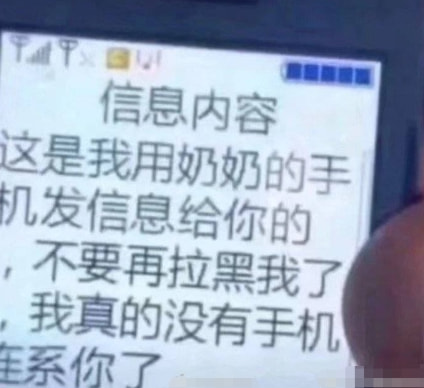 信息内容
这是我用奶奶的手
机发信息给你的
，不要再拉黑我了
，我真的没有手机
联系你了